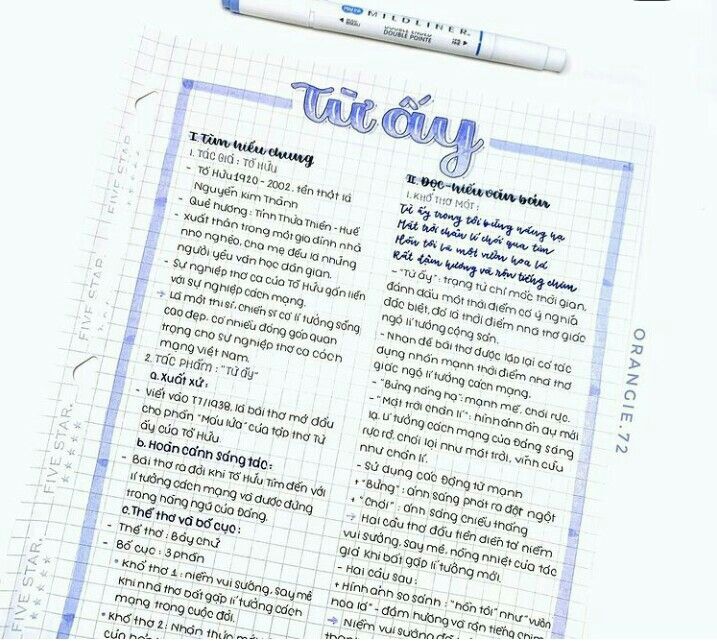 MILDLINER.
DOUBLE ENDED
DOUBLE POINTE
Từ ấy
I. Tìm hiểu chung
1. TÁC GIẢ : TỐ HỮU
- Tố Hữu 1920 - 2002, tên thật là
Nguyễn Kim Thành
- Quê hương : Tỉnh Thừa Thiên - Huế
- Xuất thân trong một gia đình nhà
nho nghèo, cha mẹ đều là những
người yêu văn học dân gian.
- Sự nghiệp thơ ca của Tố Hữu gắn liền
với sự nghiệp cách mạng.
→ Là một thi sĩ, chiến sĩ có lí tưởng sống
cao đẹp, có nhiều đóng góp quan
trọng cho sự nghiệp thơ ca cách
mạng Việt Nam.
2. TÁC PHẨM : "TỪ ẤY"
a. Xuất xứ :
- Viết vào T7/1938, là bài thơ mở đầu
cho phần "Máu lửa" của tập thơ Từ
ấy của Tố Hữu
b. Hoàn cảnh sáng tác :
- Bài thơ ra đời khi Tố Hữu tìm đến với
lí tưởng cách mạng và được đứng
trong hàng ngũ của Đảng.
c. Thể thơ và bố cục :
- Thể thơ : Bảy chữ
- Bố cục : 3 phần
• Khổ thơ 1 : niềm vui sướng, say mê
khi nhà thơ bắt gặp lí tưởng cách
mạng trong cuộc đời.
• Khổ thơ 2 : Nhận thức mới
II. Đọc-hiểu văn bản
1. KHỔ THƠ MỘT :
Từ ấy trong tôi bừng nắng hạ
Mặt trời chân lí chói qua tim
Hồn tôi là một vườn hoa lá
Rất đậm hương và rộn tiếng chim
- "Từ ấy" : trạng từ chỉ mốc thời gian,
đánh dấu một thời điểm có ý nghĩa
đặc biệt, đó là thời điểm nhà thơ giác
ngộ lí tưởng cộng sản.
- Nhan đề bài thơ được lặp lại có tác
dụng nhấn mạnh thời điểm nhà thơ
giác ngộ lí tưởng cách mạng.
- "Bừng nắng hạ" : mạnh mẽ, chói rực.
- "Mặt trời chân lí" : hình ảnh ẩn dụ mới
lạ. Lí tưởng cách mạng của Đảng sáng
rực rỡ, chói lọi như mặt trời, vĩnh cửu
như chân lí.
- Sử dụng các động từ mạnh
+ "Bừng" : ánh sáng phát ra đột ngột
+ "Chói" : ánh sáng chiếu thẳng
→ Hai câu thơ đầu tiên diễn tả niềm
vui sướng, say mê, nồng nhiệt của tác
giả khi bắt gặp lí tưởng mới.
- Hai câu sau :
+ Hình ảnh so sánh : "hồn tôi" như "vườn
hoa lá" - đậm hương và rộn tiếng chim
→ Niềm vui sướng
ORANGIE.72
FIVE STAR.
FIVE STAR.
FIVE STAR.
FIVE STAR.
FIVE STAR.